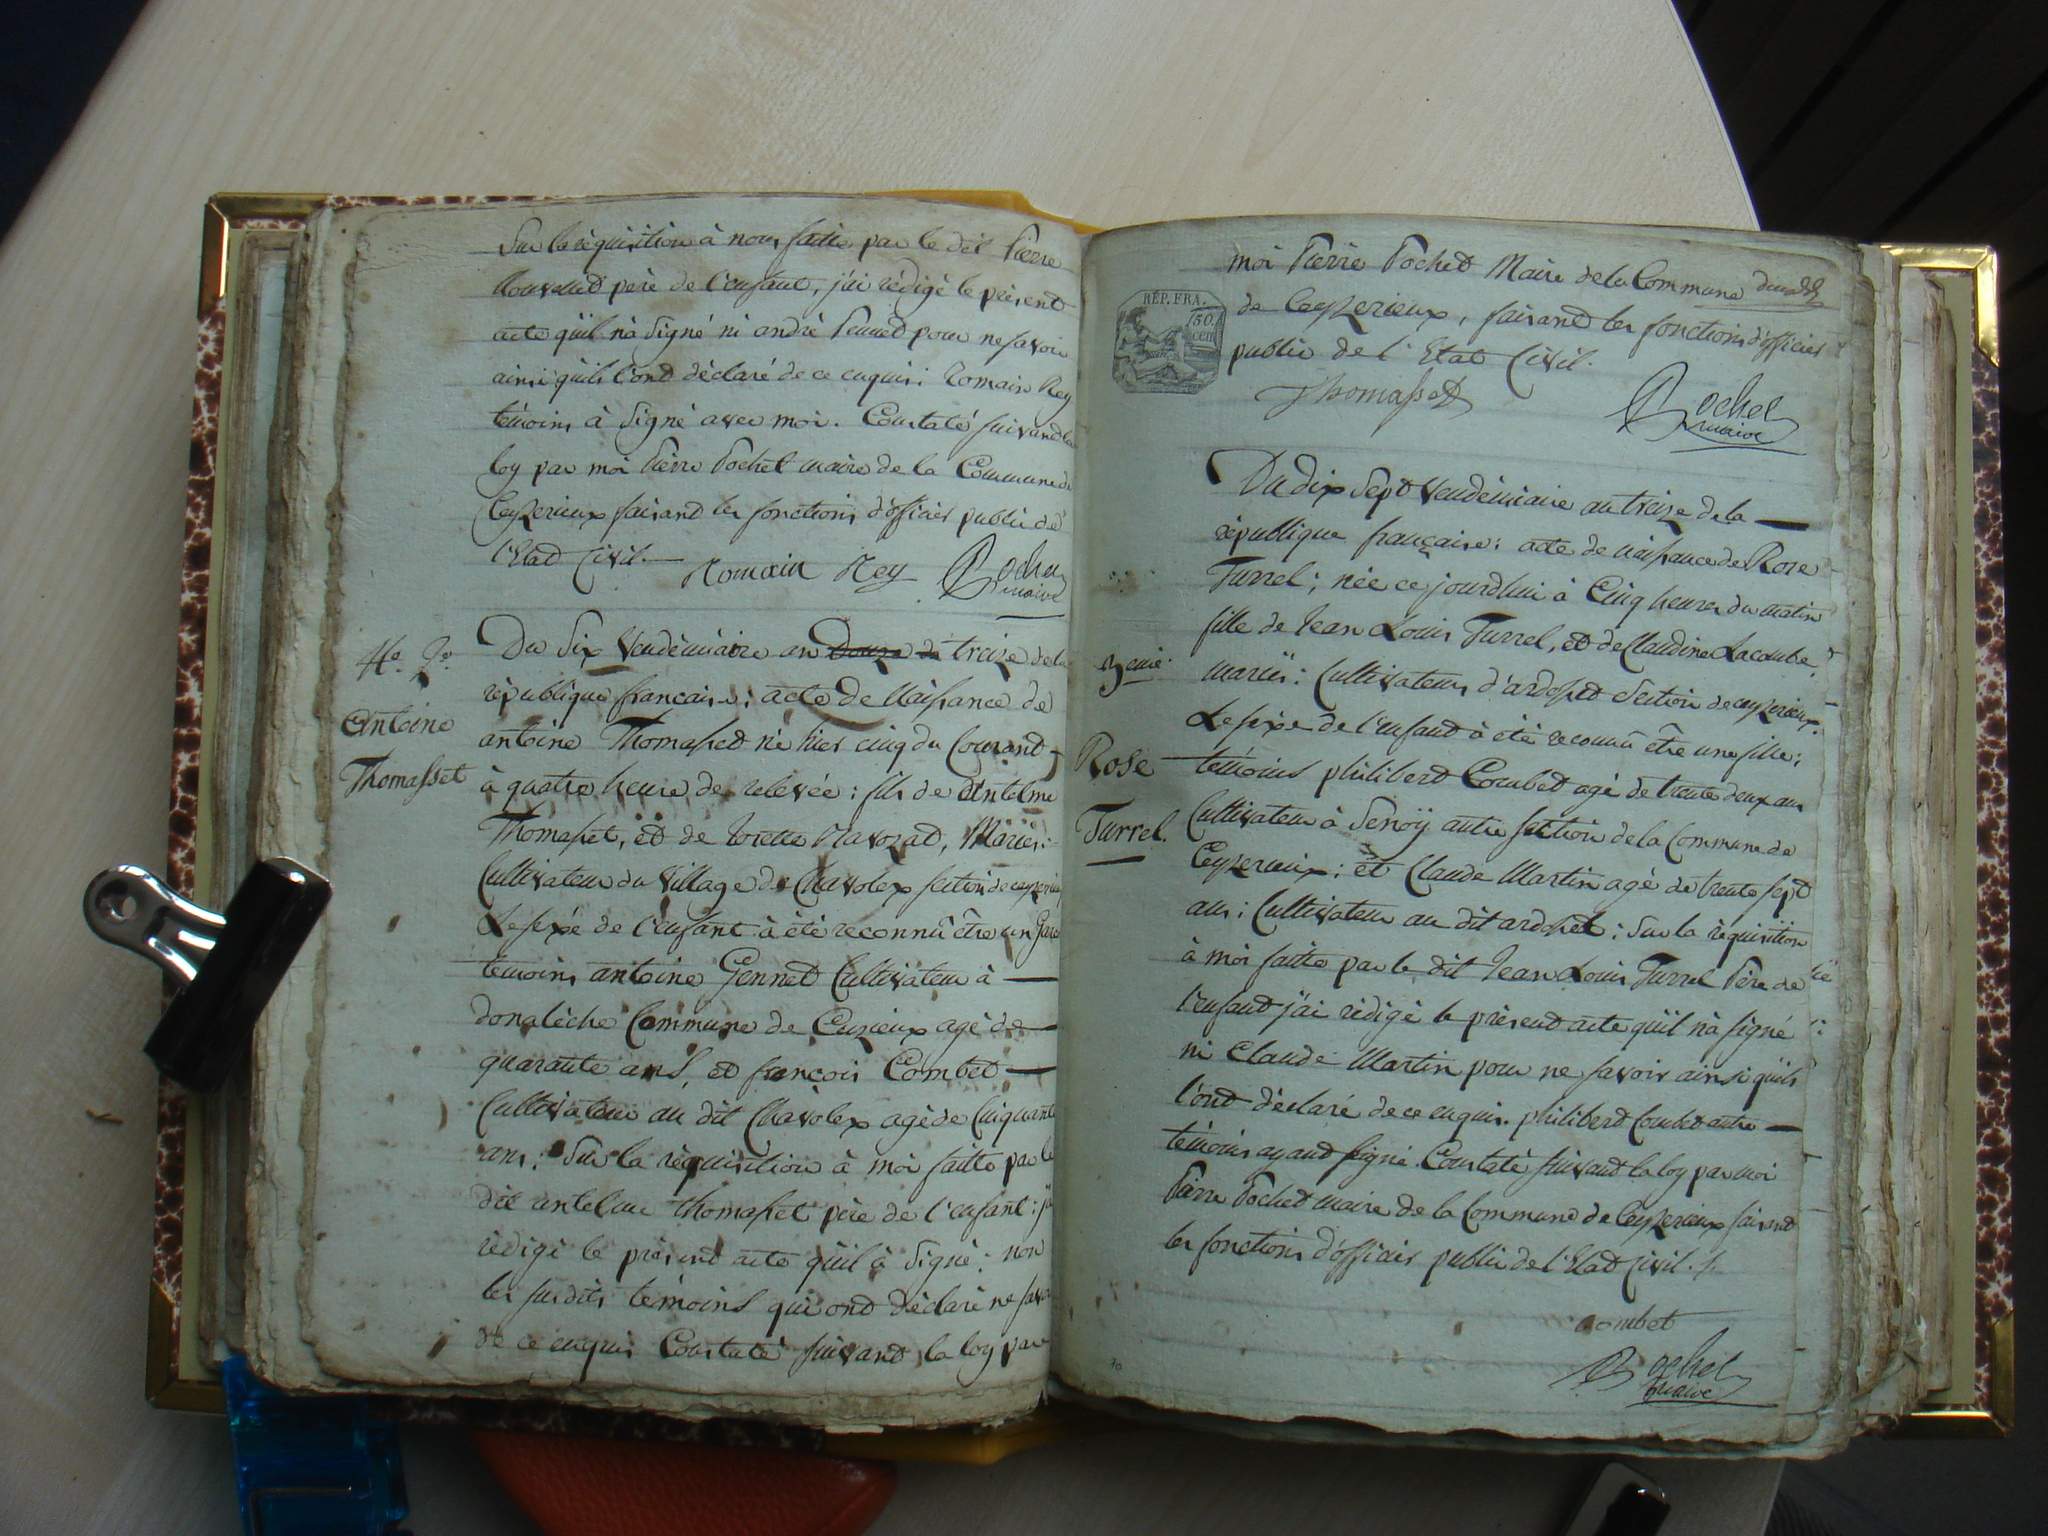 Sur la réquisition à nous faitte par le dit Pierre
père de l'enfant, j'ai rédigé le présent
acte qu'il n'a signé ni andré pour ne savoir
ainsi qu'ils l'ont déclaré de ce enquis: Romain Rey
témoins à signé avec moi. Constaté suivant la
loy par moi Pierre Pochet maire de la Commune de
Ceyzerieux faisand les fonctions d'officier public de
l'Etad Civil.
Romain Rey Pochet
maire
Du Six Vendémiaire an Douze de treize de la
république francaise: acte de Naissance de
antoine Thomasset né hier cinq du Courand
à quatre heure de relévée: fils de Antelme
Thomasset, et de Josette Mariés:
Cultivateur du Village de Chavolex section de ceyzerieu
Le sexe de l'enfant à été reconnû être un Garc
témoins antoine Gennet Cultivateur à
donalèche Commune de Cuzieux agé de
quarante ans, et françois Combet
Cultivateur au dit Chavolex agé de Cinquante
ans: Sur la réquisition à moi faitte par le
dit antelme thomasset père de l'enfant: j'ai
rédigé le présent acte qu'il à Signé: non
les susdits témoins qui ond déclaré ne savoi
de ce enquis Constaté suivand la loy par
Antoine
Thomasset
REP. FRA.
50.
cen
moi Pierre Pochet Maire de la Commune
de Ceyzerieux, faisand les fonctions d'officier
public de l'Etat Civil.
Thomasset
Pochet
maire
Du dix Sept Vendémiaire an treize de la
république française: acte de naissance de Rose
Turrel; née ce jourdhui à Cinq heures du matin
fille de Jean Louis Turrel, et de Claudine Lacombe
mariés: Cultivateurs d'ardosset Section de ceyzerieux.
Le sexe de l'enfant à été reconnû être une fille;
témoins philiberd Combet agé de trente deux ans
Cultivateur à Senoÿ autre section de la Commune de
Ceyzerieux; et Claude Martin agé de trente sept
ans: Cultivateur au dit ardosset: Sur la réquisition
à moi faitte par le dit Jean Louis Turrel Père de
l'enfand j'ai rédigé le présend acte qu'il n'à signé
ni Claude Martin pour ne savoir ainsi qu'ils
l'ond déclaré de ce enquis. philiberd Combet autre
témoins ayand signé. Constaté suivand la loy par moi
Pierre Pochet maire de la Commune de Ceyzerieux faisand
les fonctions d'officier public de l'Etad Civil./.
combet
Pochet
maire
3eme
Rose
Turrel.